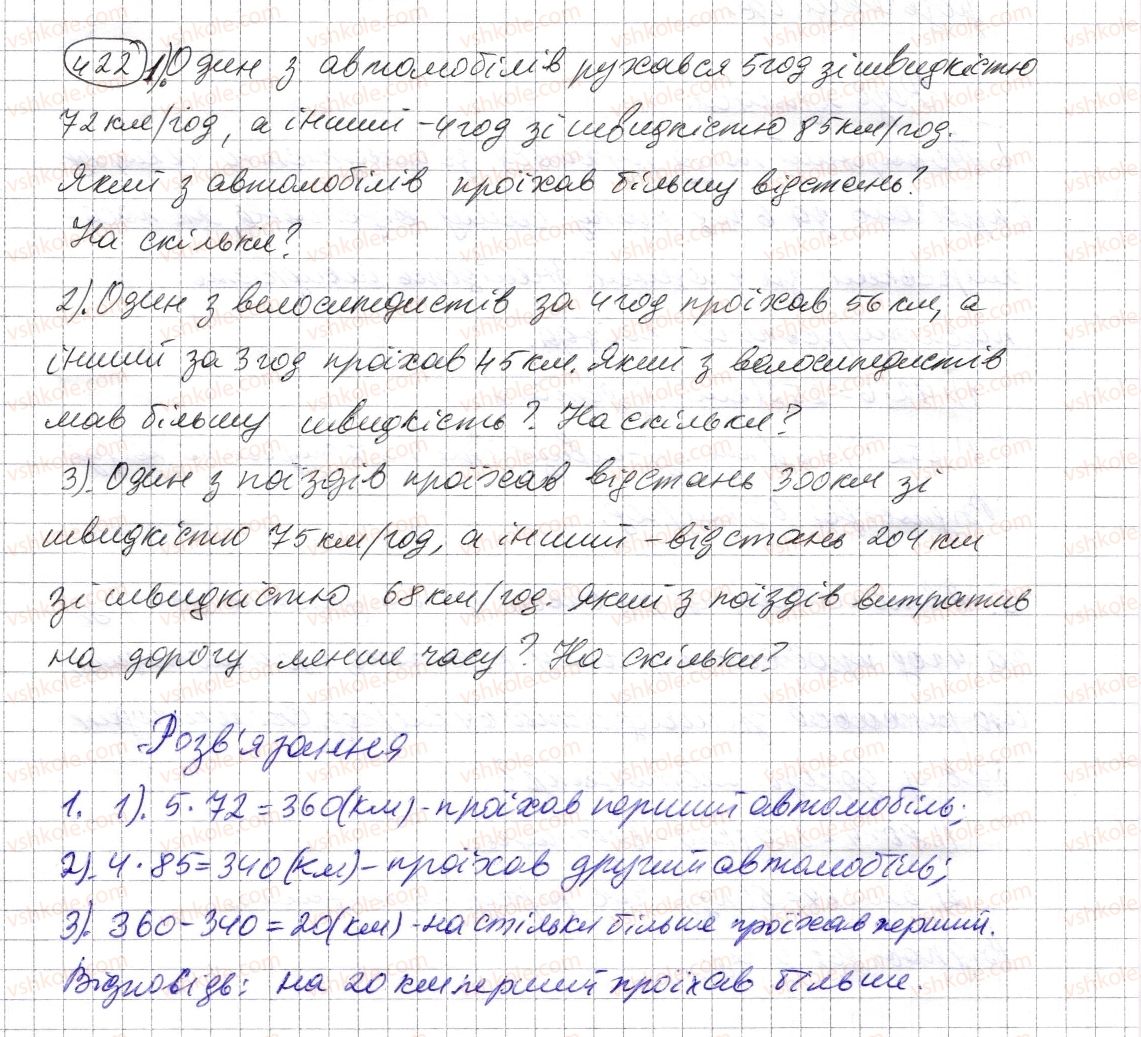 422 1). Один з автомобілів рухався 5 год зі швидкістю
72 км/год, а інший - 4 год зі швидкістю 85 км/год.
Який з автомобілів проїхав більшу відстань?
На скільки?
2). Один з велосипедистів за 4 год проїхав 56 км, а
інший за 3 год проїхав 45 км. Який з велосипедистів
мав більшу швидкість? На скільки?
3). Один з поїздів проїхав відстань 300 км зі
швидкістю 75 км/год, а інший - відстань 204 км
зі швидкістю 68 км/год. Який з поїздів витратив
на дорогу менше часу? На скільки?
Розв'язання
1. 1). 5 · 72 = 360 (км) - проїхав перший автомобіль;
2). 4 · 85 = 340 (км) - проїхав другий автомобіль;
3). 360 - 340 = 20 (км) - на стільки більше проїхав перший.
Відповідь: на 20 км перший проїхав більше.